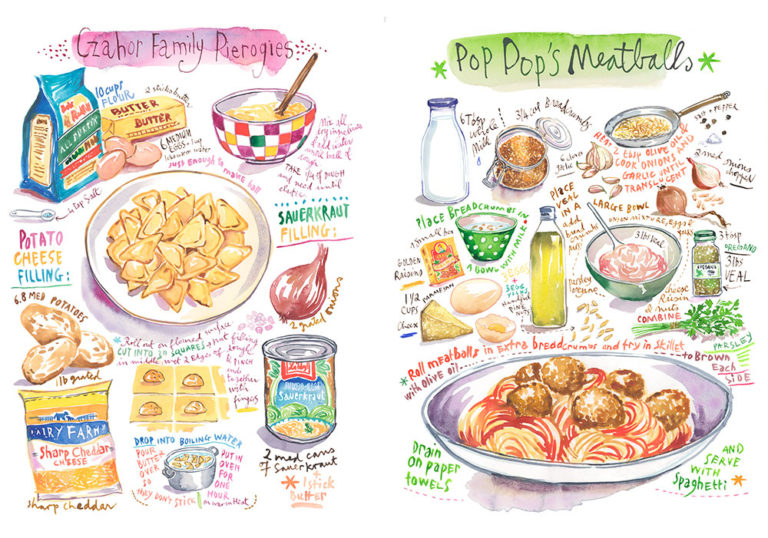 Czahor Family Pierogies
10 cups
FLOUR
2 sticks butter
BUTTER
BUTTER
ALL PURPOSE
6 MEDIUM
EGGS - 1 cup
lukewarm water
just enough to make ball
Mix all
dry ingredients
TAKE 1/4 OF dough
and knead until
elastic
1 tsp salt
POTATO
CHEESE
FILLING:
SAUERKRAUT
FILLING:
2 grated onions
6-8 MED POTATOES
1 lb grated
Roll out on floured surface
CUT INTO 30 SQUARES & put filling
in middle, wet 2 edges of dough
& PINCH
together
with
fingers
DAIRY FARM
Sharp Cheddar
CHEESE
sharp cheddar
DROP INTO BOILING WATER
POUR
BUTTER
OVER
SO
THEY DON'T STICK
PUT IN
OVEN
FOR
ONE
HOUR
on warm heat
Sauerkraut
2 med cans
Sauerkraut
+ 1 stick
Butter
Pop Pop's Meatballs
6 Tbsp
whole
Milk
3/4 cup Breadcrumbs
6 cloves
garlic
SALT + PEPPER
2 Tbsp OLIVE OIL &
COOK ONIONS AND
GARLIC UNTIL
TRANSLUCENT
2 med onions
chopped
PLACE BREADCRUMBS IN
A BOWL WITH MILK
PLACE
VEAL
IN A
LARGE BOWL
add
onion mixture, eggs &
3 lbs veal
1 small box
GOLDEN
Raisins
1 1/2
CUPS
Cheese
PARMESAN
3 EGGS
3 EGG
YOLKS
handful
PINE
Nuts
parsley
oregano
cheese
Raisin
& nuts
COMBINE
3 tbsp
OREGANO
3 lbs
VEAL
PARSLEY
Roll meatballs in extra breadcrumbs and fry in Skillet
with olive oil
to Brown
Each
SIDE
Drain
on paper
TOWELS
AND
SERVE
WITH
Spaghetti